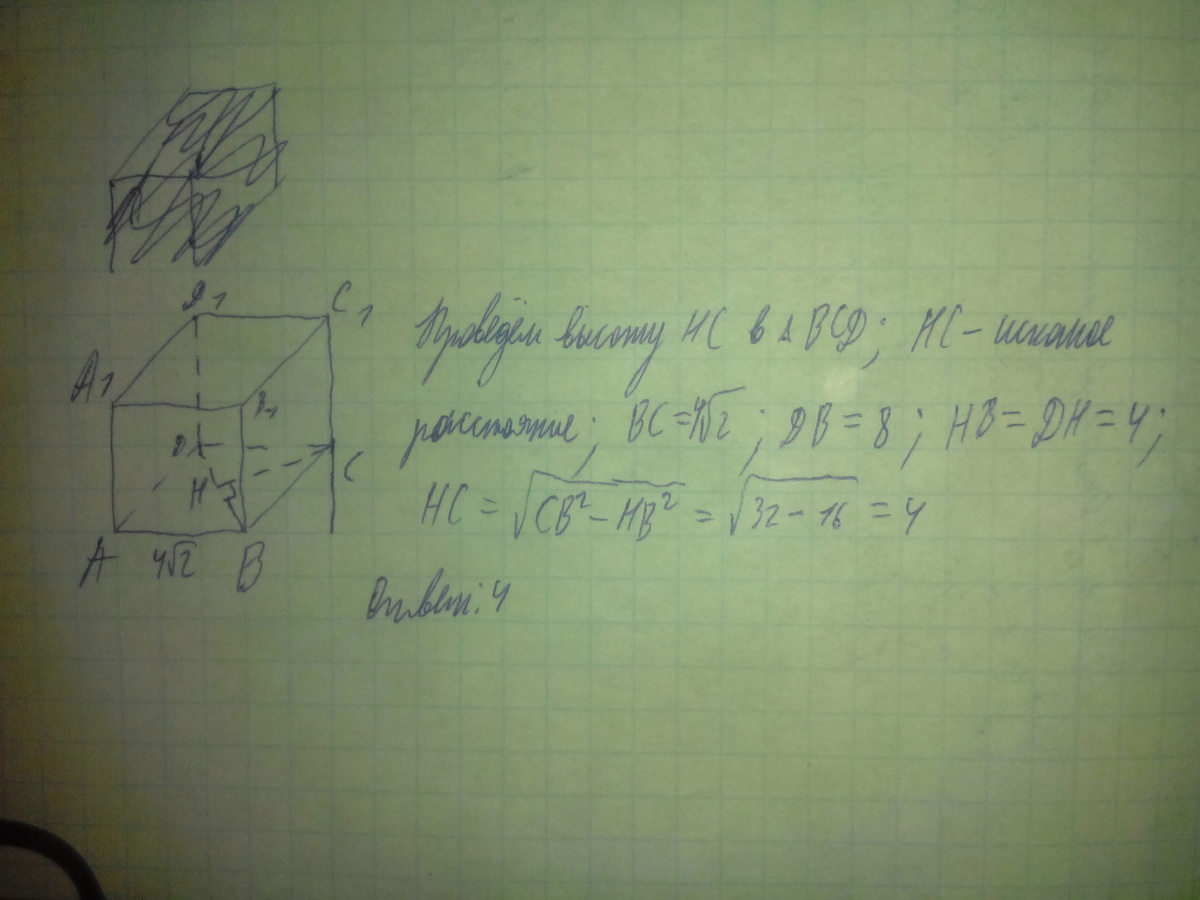 D1 C1
A1 B1
D C
H
A 4√2 B
Проведём высоту HC в △ BCD; HC - искомое
расстояние; BC=4√2; DB=8; HB=DH=4;
HC = √CB²-HB² = √32-16 = 4
Ответ: 4